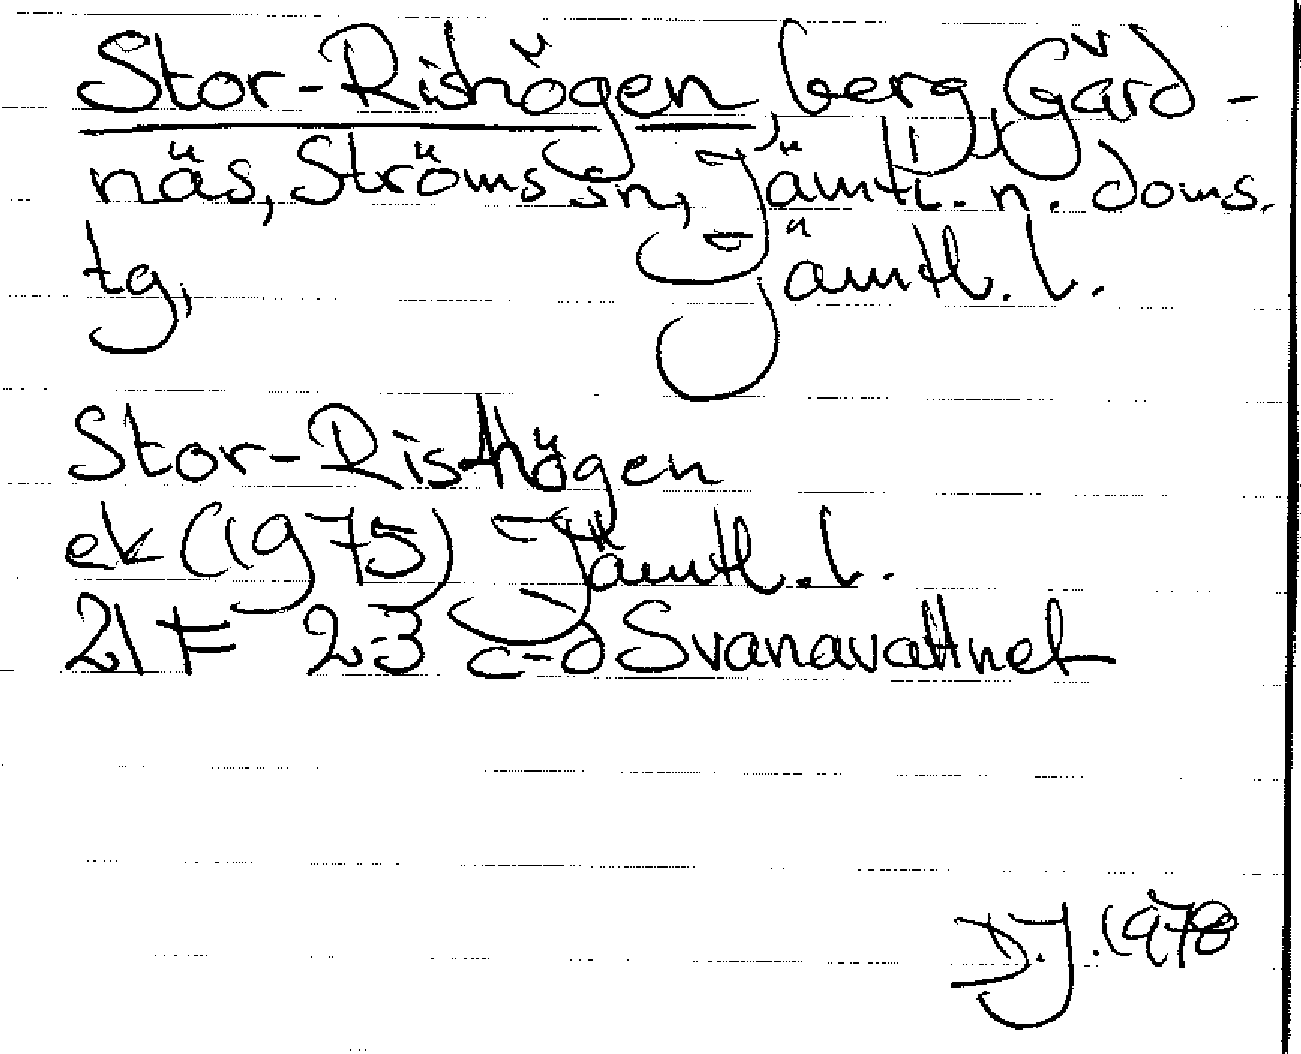 Stor-Rishögen, berg, Gärd-
näs, Ströms sn, Jämtl. n. doms.
tg, Jämtl. l.
Stor-Rishögen
ek (1975) Jämtl. l.
21F 2-3 c-d Svanavattnet
D.J. 1978